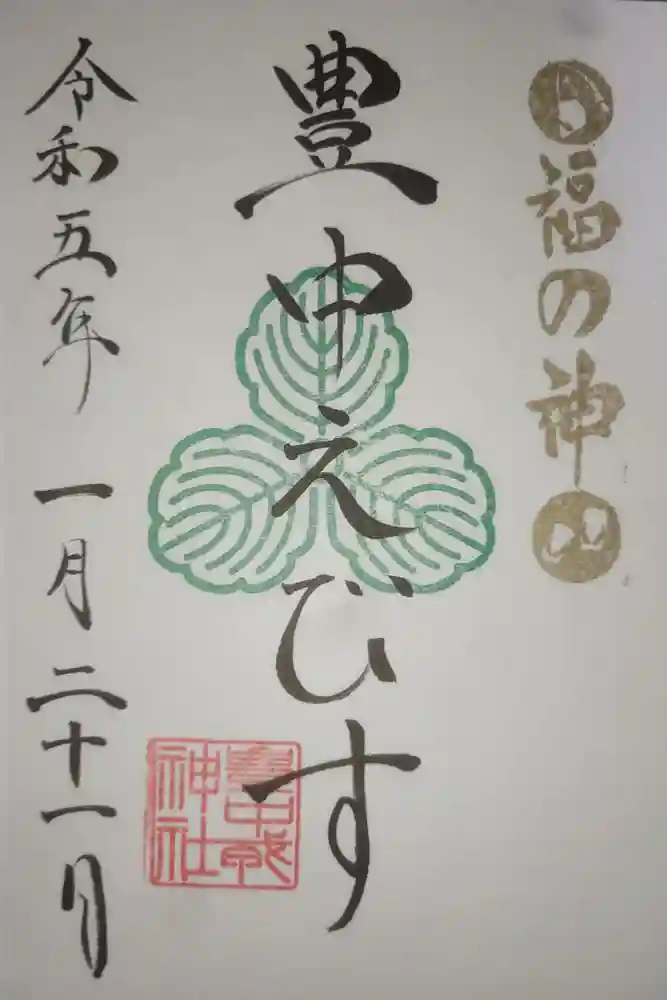 日福の神
豊中えびす
豊中戎
神社
令和五年 一月二十一日